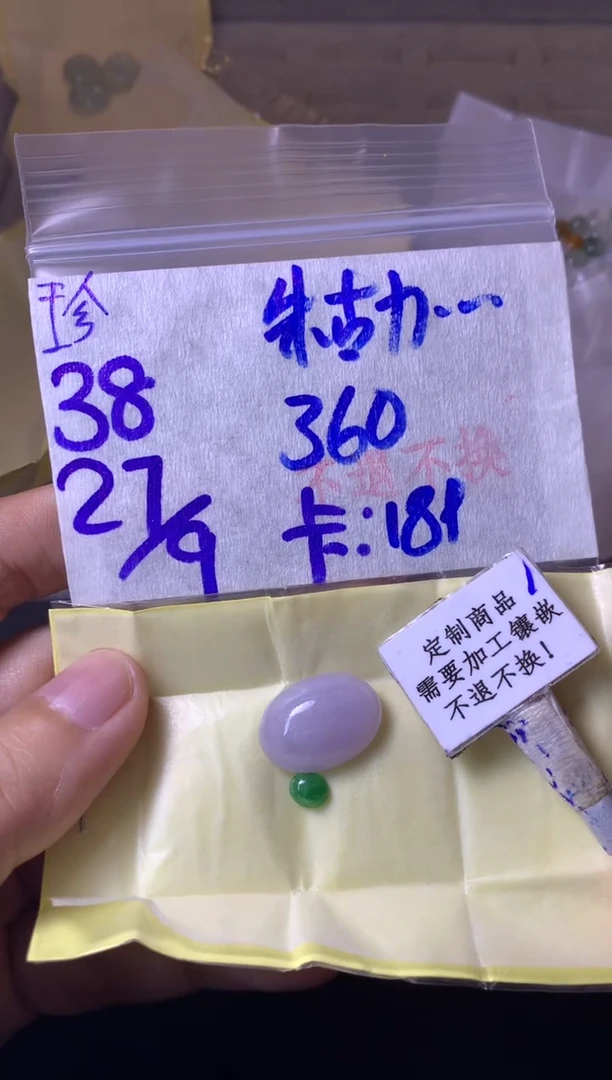 珍
38
27/9
朱古力...
360
不退不换
卡:181
定制商品
需要加工镶嵌
不退不换!